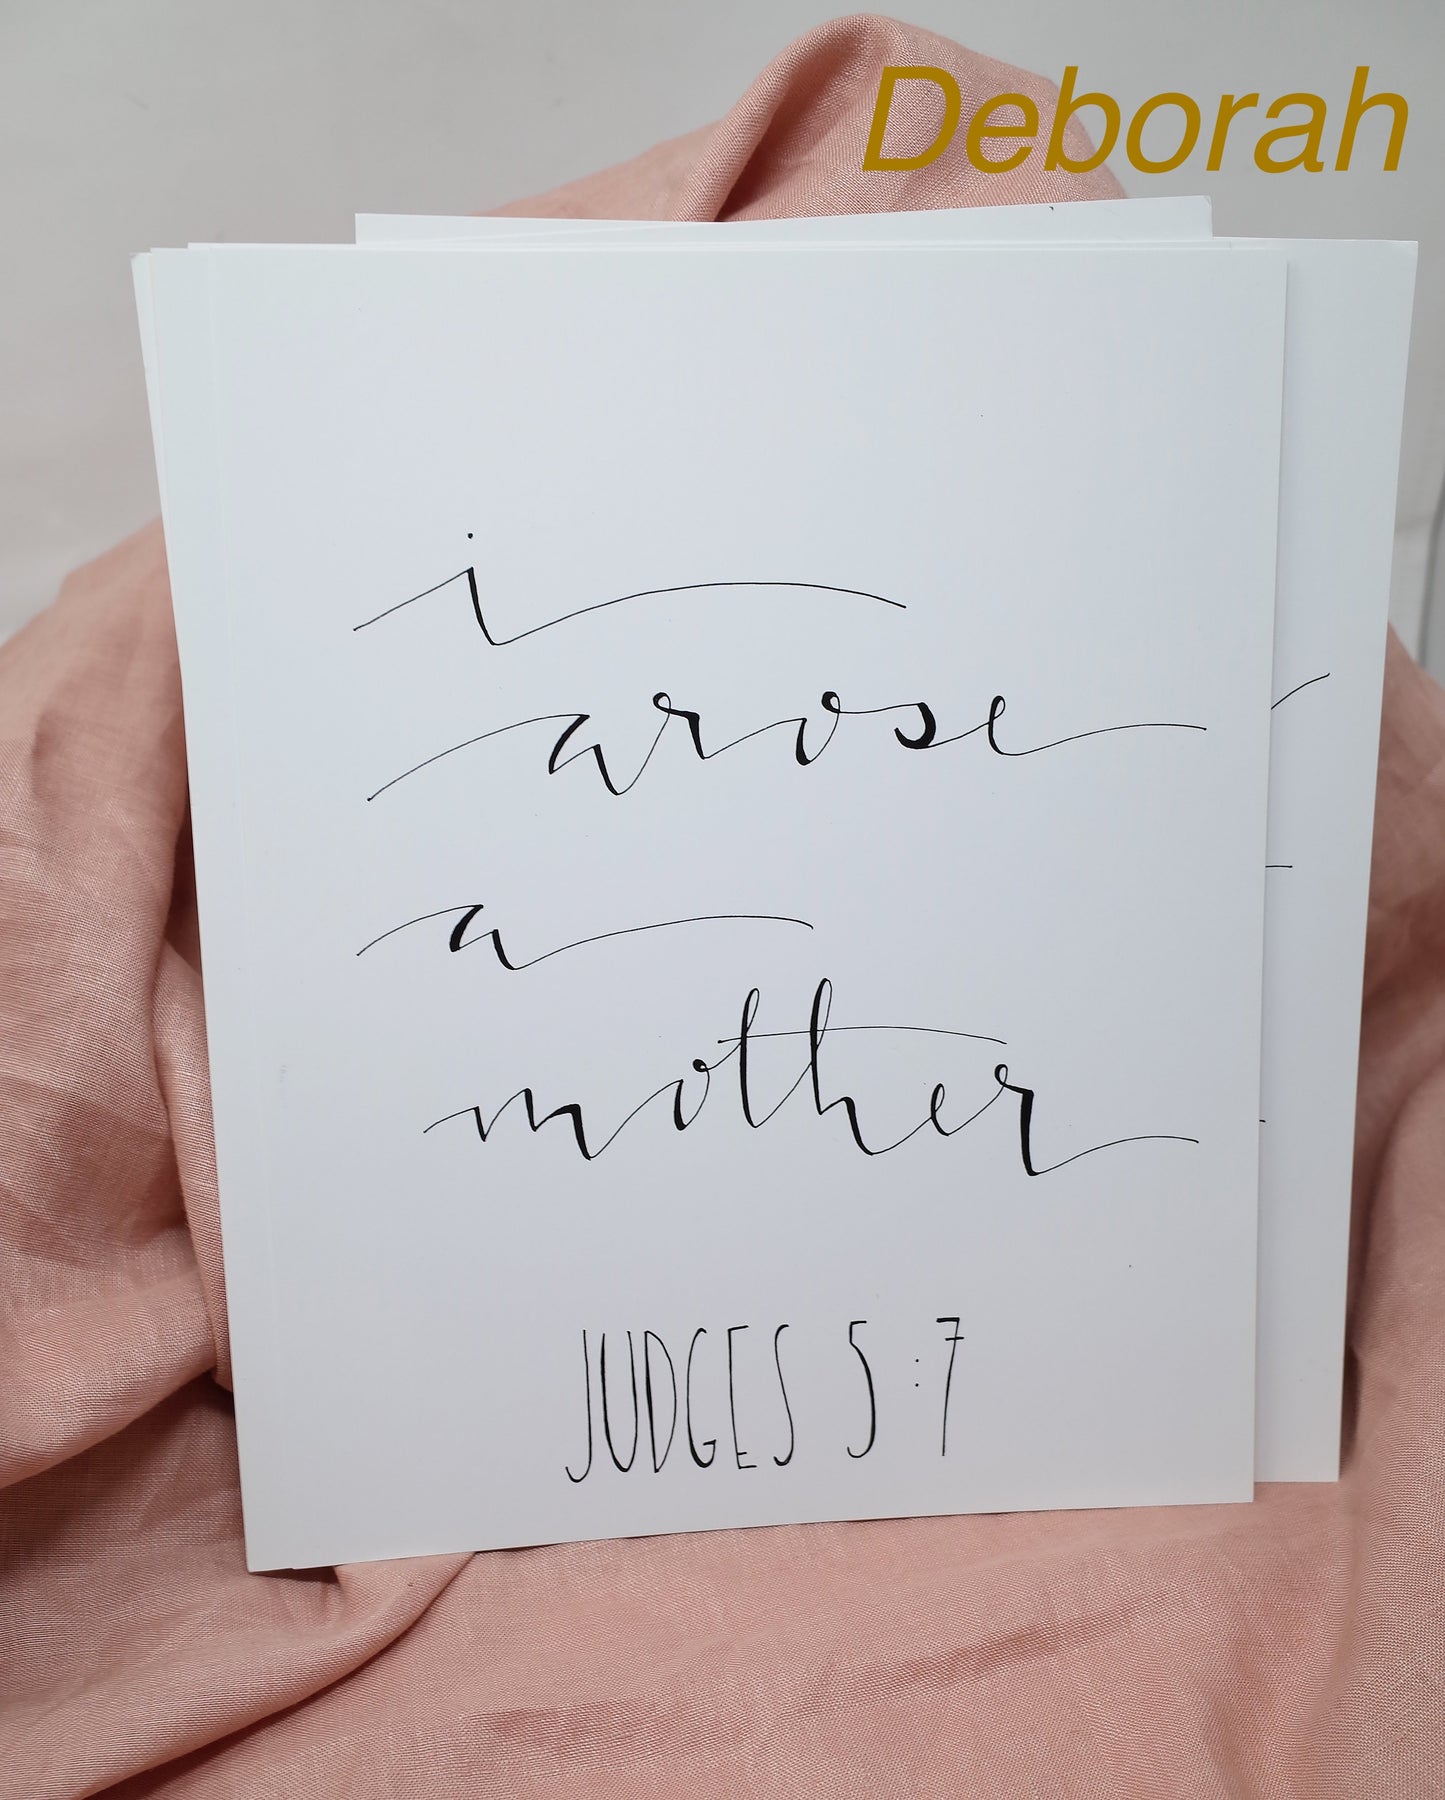 Deborah
i
arose
a
mother
JUDGES 5:7